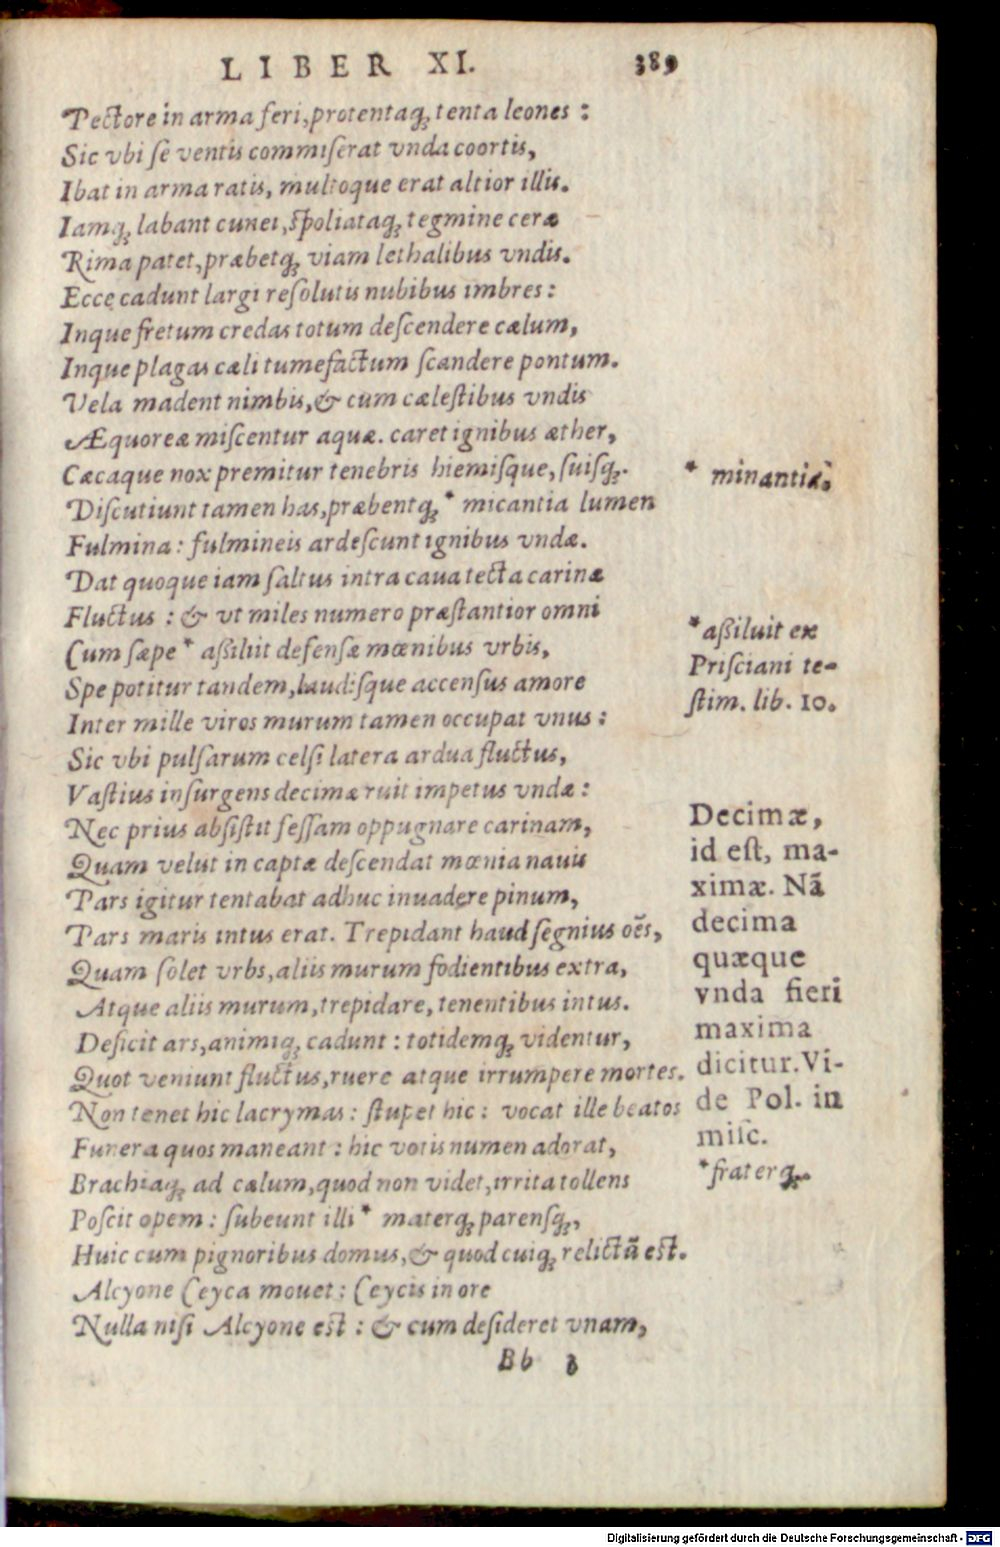 LIBER XI. 389
Pectore in arma feri, protentaq; tenta leones :
Sic vbi se ventis commiserat vnda coortis,
Ibat in arma ratis, multoque erat altior illis.
Iamq; labant cunei, spoliataq; tegmine ceræ
Rima patet, præbetq; viam lethalibus vndis.
Ecce cadunt largi resolutis nubibus imbres :
Inque fretum credas totum descendere cælum,
Inque plagas cæli tumefactum scandere pontum.
Vela madent nimbis, & cum cælestibus vndis
Æquoreæ miscentur aquæ. caret ignibus æther,
Cæcaque nox premitur tenebris hiemisque, suisq;.
Discutiunt tamen has, præbentq; * micantia lumen
Fulmina : fulmineis ardescunt ignibus vndæ.
Dat quoque iam saltus intra caua tecta carinæ
Fluctus : & vt miles numero præstantior omni
Cum sæpe * assiliit defensæ mœnibus vrbis,
Spe potitur tandem, laudisque accensus amore
Inter mille viros murum tamen occupat vnus :
Sic vbi pulsarum celsi latera ardua fluctus,
Vastius insurgens decimæ ruit impetus vndæ :
Nec prius absistit fessam oppugnare carinam,
Quam velut in captæ descendat mœnia nauis
Pars igitur tentabat adhuc inuadere pinum,
Pars maris intus erat. Trepidant haud segnius oēs,
Quam solet vrbs, aliis murum fodientibus extra,
Atque aliis murum, trepidare, tenentibus intus.
Deficit ars, animiq; cadunt : totidemq; videntur,
Quot veniunt fluctus, ruere atque irrumpere mortes.
Non tenet hic lacrymas : stupet hic : vocat ille beatos
Funera quos maneant : hic votis numen adorat,
Brachiaq; ad cælum, quod non videt, irrita tollens
Poscit opem : subeunt illi * materq; parensq;,
Huic cum pignoribus domus, & quod cuiq; relictū est.
Alcyone Ceyca mouet : Ceycis in ore
Nulla nisi Alcyone est : & cum desideret vnam,
Bb 3
* minantia,
* assiluit ex
Prisciani te-
stim. lib. 10.
Decimæ,
id est, ma-
ximæ. Nā
decima
quæque
vnda fieri
maxima
dicitur. Vi-
de Pol. in
misc.
* fraterq;.
Digitalisierung gefördert durch die Deutsche Forschungsgemeinschaft - DFG